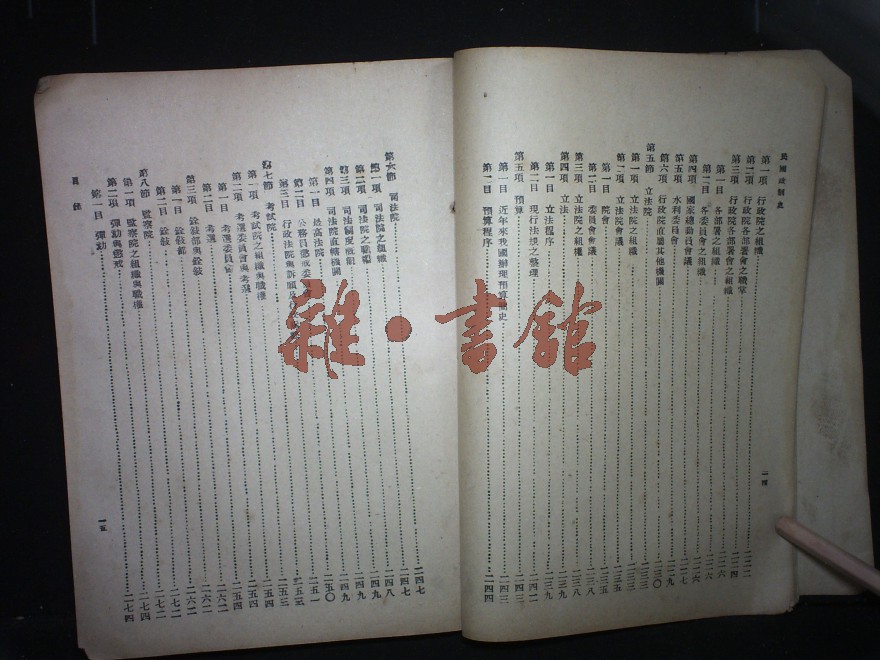 民國政制史
一四
第一項 行政院之組織……二二二
第二項 行政院各部署會之職掌……二二三
第三項 行政院各部署會之組織……二二四
第一目 各部署之組織……二二六
第二目 各委員會之組織……二二六
第四項 國家總動員會議……二二六
第五項 水利委員會……二二七
第六項 行政院直屬其他機關……二二九
第五節 立法院
第一項 立法院之組織
第二項 立法院會議……二三五
第一目 院會……二三五
第二目 委員會會議……二三八
第三項 立法院之職權……二三九
第四項 立法……二三九
第一目 立法程序……二三九
第二目 現行法規之整理……二四二
第五項 預算……二四三
第一目 近年來我國辦理預算簡史……二四三
第二目 預算程序……二四四
第六節 司法院……二四七
第一項 司法院之組織……二四七
第二項 司法院之職權……二四八
第三項 司法制度概觀……二四九
第四項 司法院直轄機關……二五〇
第一目 最高法院……二五一
第二目 公務員懲戒委
第三目 行政法院與訴願
第七節 考試院……二五四
第一項 考試院之組織與職權……二五四
第二項 考選委員會與考選……二五四
第一目 考選委員會……二六一
第二目 考選……二六一
第三項 銓敍部與銓敍
第一目 銓敍部……二七二
第二目 銓敍……二七二
第八節 監察院……二七四
第一項 監察院之組織與職權……二七四
第二項 彈劾與懲戒
第一目 彈劾……二七四
目錄
一五
雜·書館